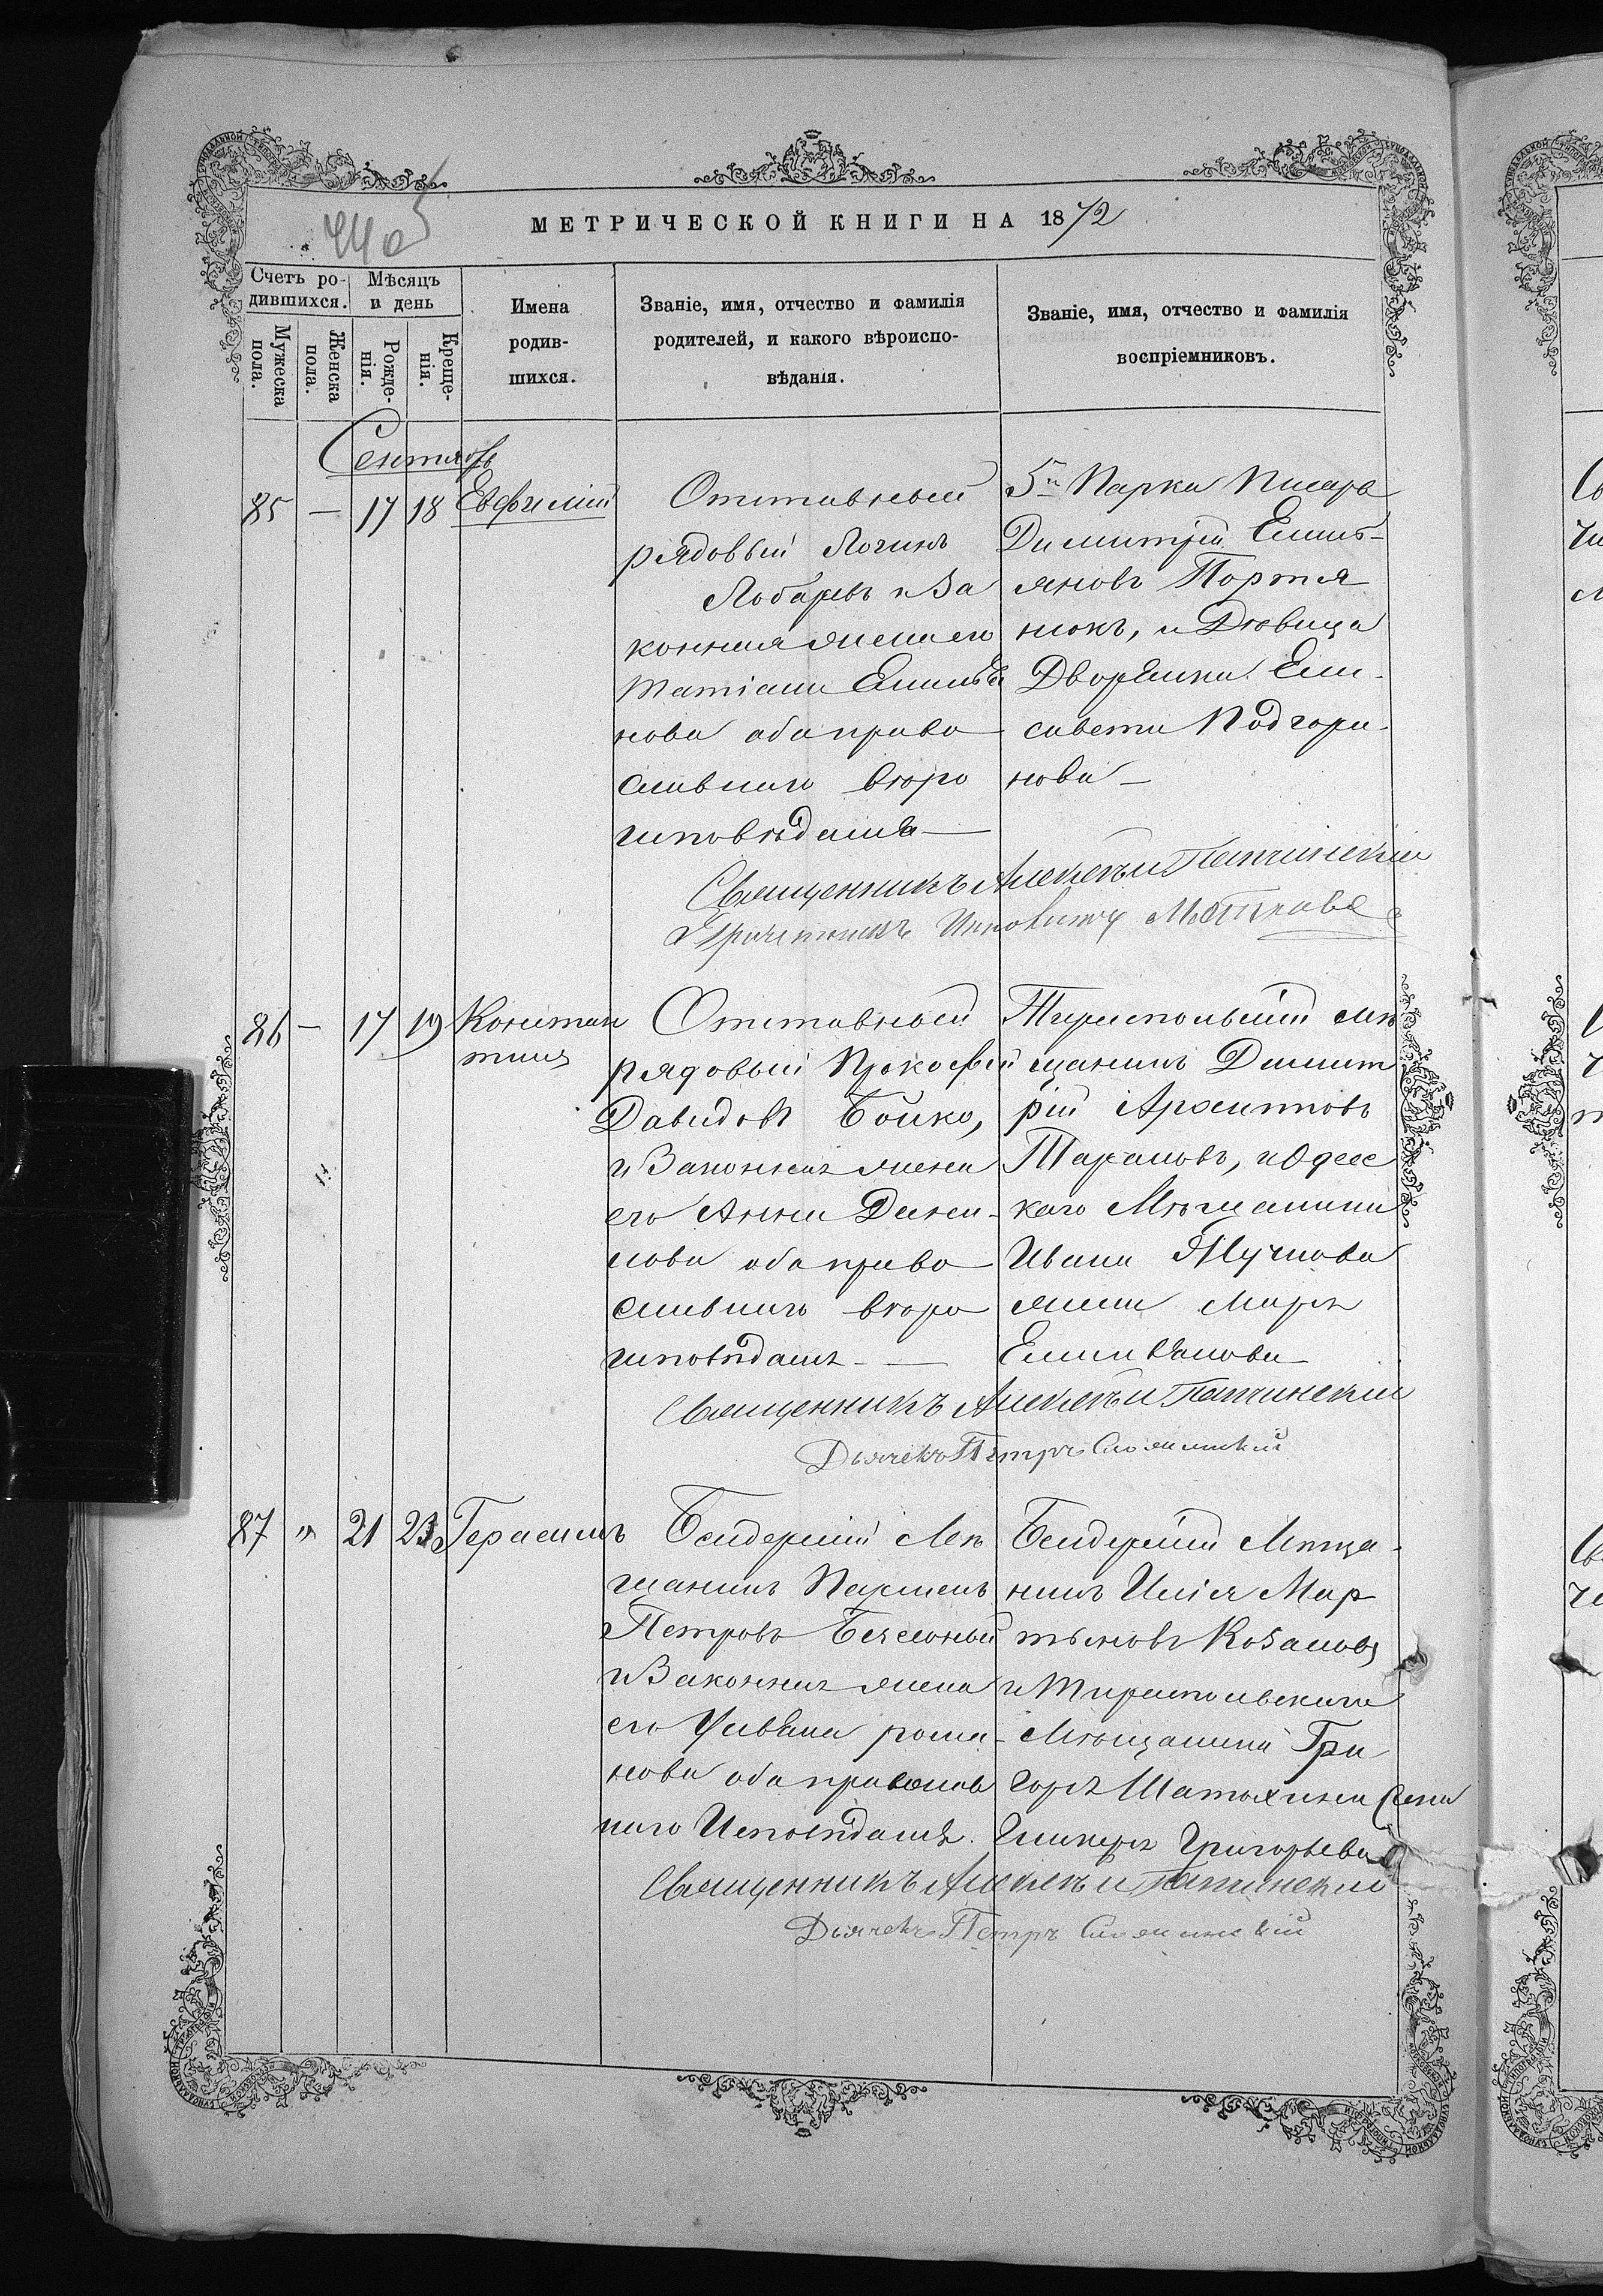 МЕТРИЧЕСКОЙ КНИГИ НА 1872
Счетъ ро-
дившихся.
Мѣсяцъ
и день
Мужеска
пола.
Женска
пола.
Рожде-
нія.
Креще-
нія.
Имена
родив-
шихся.
Званіе, имя, отчество и фамилія
родителей, и какого вѣроиспо-
вѣданія.
Званіе, имя, отчество и фамилія
воспріемниковъ.
Сентябрь
85 — 17 18 Евфимій
Отставной
рядовый Логинъ
Лобаревъ и За
конная жена его
Татіана Емилья
нова оба право
славнаго вѣро
исповѣданія —
5й Парка Писарь
Димитрій Емилъ-
яновъ Портя
нокъ, и Дѣвица
Дворянка Ели-
савета Подгори-
нова —
Священникъ Алексѣй
Причетникъ
86 — 17 19 Констан
тинъ
Отставной
рядовый Прокофій
Давидовъ Бойко,
и Законная жена
его Анна Дани-
лова оба право
славнаго вѣро
исповѣданія —
Тираспольскій мѣ
щанинъ Димит
рій
Тарановъ, и Одесс
каго Мѣщанина
Ивана
жена Марія
Емилянова
Священникъ Алексѣй
Дьячекъ Петръ
87 " 21 23 Герасимъ
Бендерскій Мѣ
щанинъ Парменъ
Петровъ
и Законная жена
его рома-
нова оба православ
наго Исповѣданія.
Бендерскій Мѣща-
нинъ Илія Мар
тыновъ Козаловъ
и Тираспольскаго
Мѣщанина Гри
горія Шатохина жена
Гликерія Григорьева
Священникъ Алексѣй
Дьячекъ Петръ